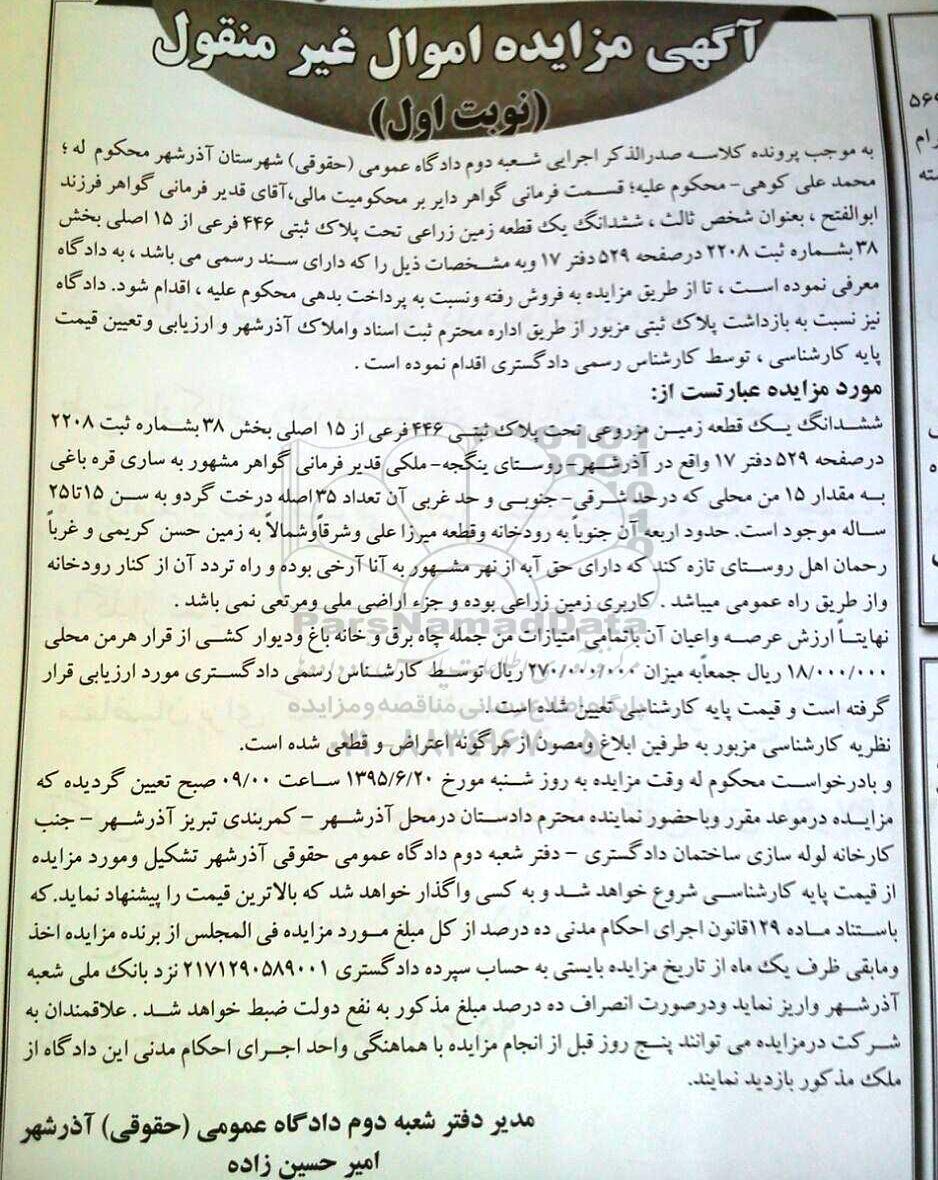 آگهی مزایده اموال غیر منقول
(نوبت اول)
به موجب پرونده کلاسه صدرالذکر اجرایی شعبه دوم دادگاه عمومی (حقوقی) شهرستان آذرشهر محکوم له ؛
محمد علی کوهی- محکوم علیه؛ قسمت فرمانی گواهر دایر بر محکومیت مالی،آقای قدیر فرمانی گواهر فرزند
ابوالفتح ، بعنوان شخص ثالث ، ششدانگ یک قطعه زمین زراعی تحت پلاک ثبتی ۴۴۶ فرعی از ۱۵ اصلی بخش
۳۸ بشماره ثبت ۲۲۰۸ درصفحه ۵۲۹ دفتر ۱۷ وبه مشخصات ذیل را که دارای سند رسمی می باشد ، به دادگاه
معرفی نموده است ، تا از طریق مزایده به فروش رفته ونسبت به پرداخت بدهی محکوم علیه ، اقدام شود. دادگاه
نیز نسبت به بازداشت پلاک ثبتی مزبور از طریق اداره محترم ثبت اسناد واملاک آذرشهر و ارزیابی وتعیین قیمت
پایه کارشناسی ، توسط کارشناس رسمی دادگستری اقدام نموده است .
مورد مزایده عبارتست از:
ششدانگ یک قطعه زمین مزروعی تحت پلاک ثبتی ۴۴۶ فرعی از ۱۵ اصلی بخش ۳۸ بشماره ثبت ۲۲۰۸
درصفحه ۵۲۹ دفتر ۱۷ واقع در آذرشهر- روستای ینگجه- ملکی قدیر فرمانی گواهر مشهور به ساری قره باغی
به مقدار ۱۵ من محلی که درحد شرقی- جنوبی و حد غربی آن تعداد ۳۵ اصله درخت گردو به سن ۱۵تا۲۵
ساله موجود است. حدود اربعه آن جنوباً به رودخانه وقطعه میرزا علی وشرقاًوشمالاً به زمین حسن کریمی و غرباً
رحمان اهل روستای تازه کند که دارای حق آبه از نهر مشهور به آنا آرخی بوده و راه تردد آن از کنار رودخانه
واز طریق راه عمومی میباشد . کاربری زمین زراعی بوده و جزء اراضی ملی ومرتعی نمی باشد .
نهایتاً ارزش عرصه واعیان آن باتمامی امتیازات من جمله چاه برق و خانه باغ ودیوار کشی از قرار هرمن محلی
۱۸/۰۰۰/۰۰۰ ریال جمعاًبه میزان ۲۷۰/۰۰۰/۰۰۰ ریال توسط کارشناس رسمی دادگستری مورد ارزیابی قرار
گرفته است و قیمت پایه کارشناسی تعیین شده است .
نظریه کارشناسی مزبور به طرفین ابلاغ ومصون از هرگونه اعتراض و قطعی شده است.
و بادرخواست محکوم له وقت مزایده به روز شنبه مورخ ۱۳۹۵/۶/۲۰ ساعت ۰۹/۰۰ صبح تعیین گردیده که
مزایده درموعد مقرر وباحضور نماینده محترم دادستان درمحل آذرشهر - کمربندی تبریز آذرشهر - جنب
کارخانه لوله سازی ساختمان دادگستری - دفتر شعبه دوم دادگاه عمومی حقوقی آذرشهر تشکیل ومورد مزایده
از قیمت پایه کارشناسی شروع خواهد شد و به کسی واگذار خواهد شد که بالاترین قیمت را پیشنهاد نماید.که
باستناد ماده ۱۲۹قانون اجرای احکام مدنی ده درصد از کل مبلغ مورد مزایده فی المجلس از برنده مزایده اخذ
ومابقی ظرف یک ماه از تاریخ مزایده بایستی به حساب سپرده دادگستری ۲۱۷۱۲۹۰۵۸۹۰۰۱ نزد بانک ملی شعبه
آذرشهر واریز نماید ودرصورت انصراف ده درصد مبلغ مذکور به نفع دولت ضبط خواهد شد . علاقمندان به
شرکت درمزایده می توانند پنج روز قبل از انجام مزایده با هماهنگی واحد اجرای احکام مدنی این دادگاه از
ملک مذکور بازدید نمایند.
مدیر دفتر شعبه دوم دادگاه عمومی (حقوقی) آذرشهر
امیر حسین زاده
ParsNamadData
پایگاه اطلاع رسانی مناقصه و مزایده